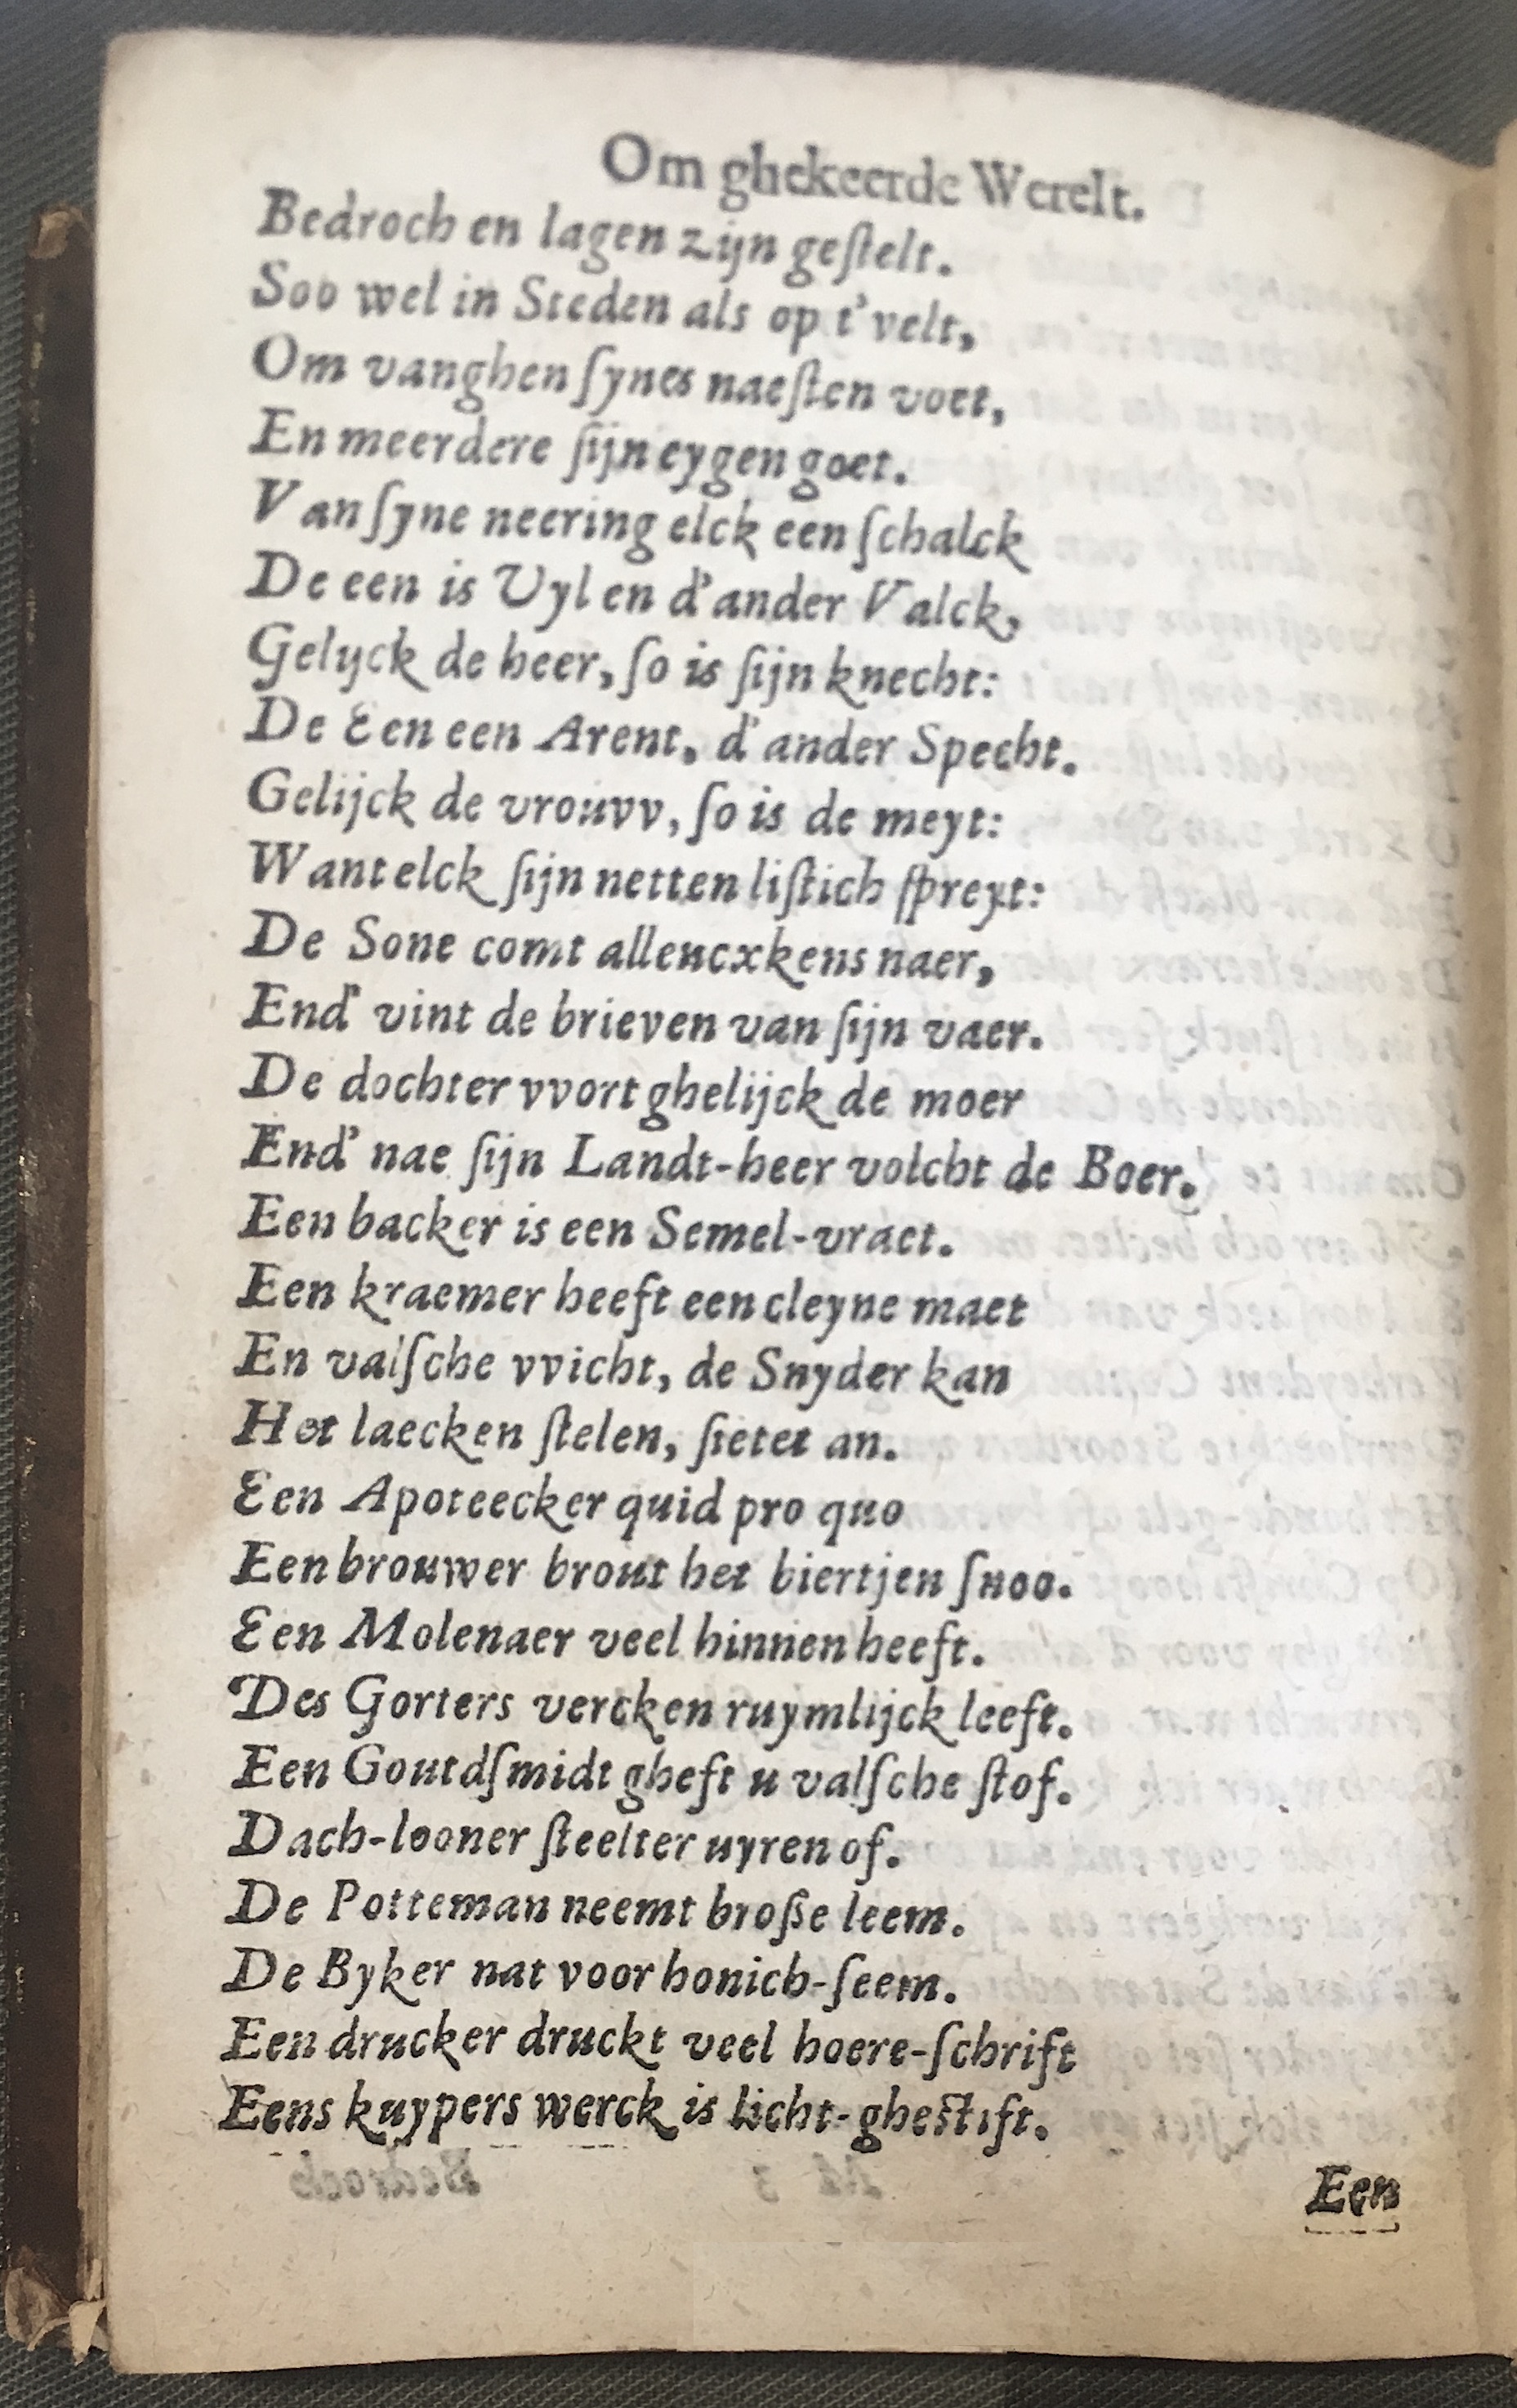 Om ghekeerde Werelt.
Bedroch en lagen zijn geſtelt.
Soo wel in Steden als op t'velt,
Om vanghen ſynes naeſten voet,
En meerdere ſijn eygen goet.
Van ſyne neering elck een ſchalck
De een is Uyl en d'ander Valck,
Gelyck de heer, ſo is ſijn knecht:
De Een een Arent, d'ander Specht.
Gelijck de vrouvv, ſo is de meyt:
Want elck ſijn netten liſtich ſpreyt:
De Sone comt allencxkens naer,
End' vint de brieven van ſijn vaer.
De dochter vvort ghelijck de moer
End' nae ſijn Landt-heer volcht de Boer.
Een backer is een Semel-vraet.
Een kraemer heeft een cleyne maet
En valſche vvicht, de Snyder kan
Het laecken ſtelen, ſietet an.
Een Apoteecker quid pro quo
Een brouwer brout het biertjen ſnoo.
Een Molenaer veel hinnen heeft.
Des Gorters vercken ruymlijck leeft.
Een Goutdſmidt gheft u valſche ſtof.
Dach-looner ſteelter uyren of.
De Potteman neemt broſſe leem.
De Byker nat voor honich-ſeem.
Een drucker druckt veel hoere-ſchrift
Eens kuypers werck is licht-gheſtift.
Een